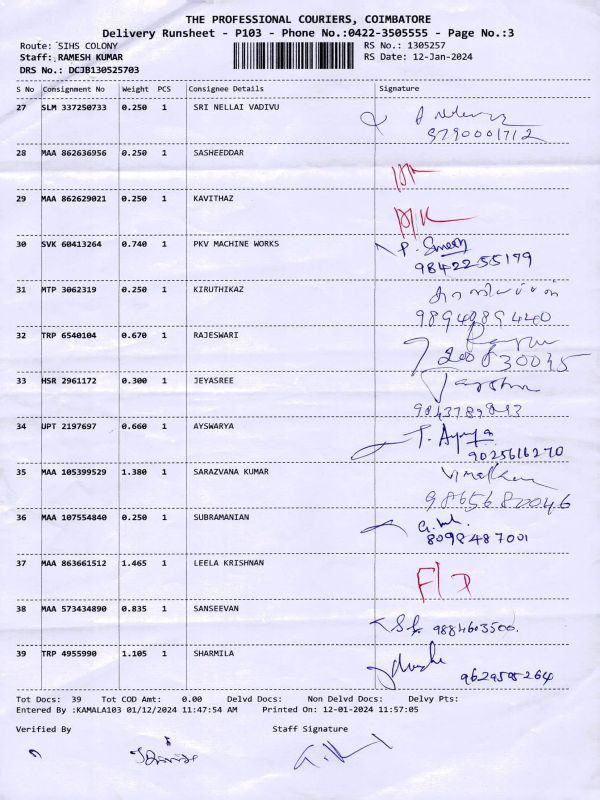 THE PROFESSIONAL COURIERS, COIMBATORE
Delivery Runsheet - P103 - Phone No.:0422-3505555 - Page No.:3
Route: SIHS COLONY
RS No.: 1305257
Staff: RAMESH KUMAR
RS Date: 12-Jan-2024
DRS No.: DCJB130525703
S No Consignment No Weight PCS Consignee Details Signature
27 SLM 337250733 0.250 1 SRI NELLAI VADIVU
9790001712
28 MAA 862636956 0.250 1 SASHEEDDAR
29 MAA 862629021 0.250 1 KAVITHAZ
30 SVK 60413264 0.740 1 PKV MACHINE WORKS
9842255179
31 MTP 3062319 0.250 1 KIRUTHIKAZ
9894089440
32 TRP 6540104 0.670 1 RAJESWARI
33 HSR 2961172 0.300 1 JEYASREE
34 UPT 2197697 0.660 1 AYSWARYA
9025616270
35 MAA 105399529 1.380 1 SARAZVANA KUMAR
36 MAA 107554840 0.250 1 SUBRAMANIAN
8098487001
37 MAA 863661512 1.465 1 LEELA KRISHNAN
38 MAA 573434890 0.835 1 SANSEEVAN
9884603500.
39 TRP 4955990 1.105 1 SHARMILA
9629595264
Tot Docs: 39 Tot COD Amt: 0.00 Delvd Docs: Non Delvd Docs: Delvy Pts:
Entered By :KAMALA103 01/12/2024 11:47:54 AM Printed On: 12-01-2024 11:57:05
Verified By Staff Signature